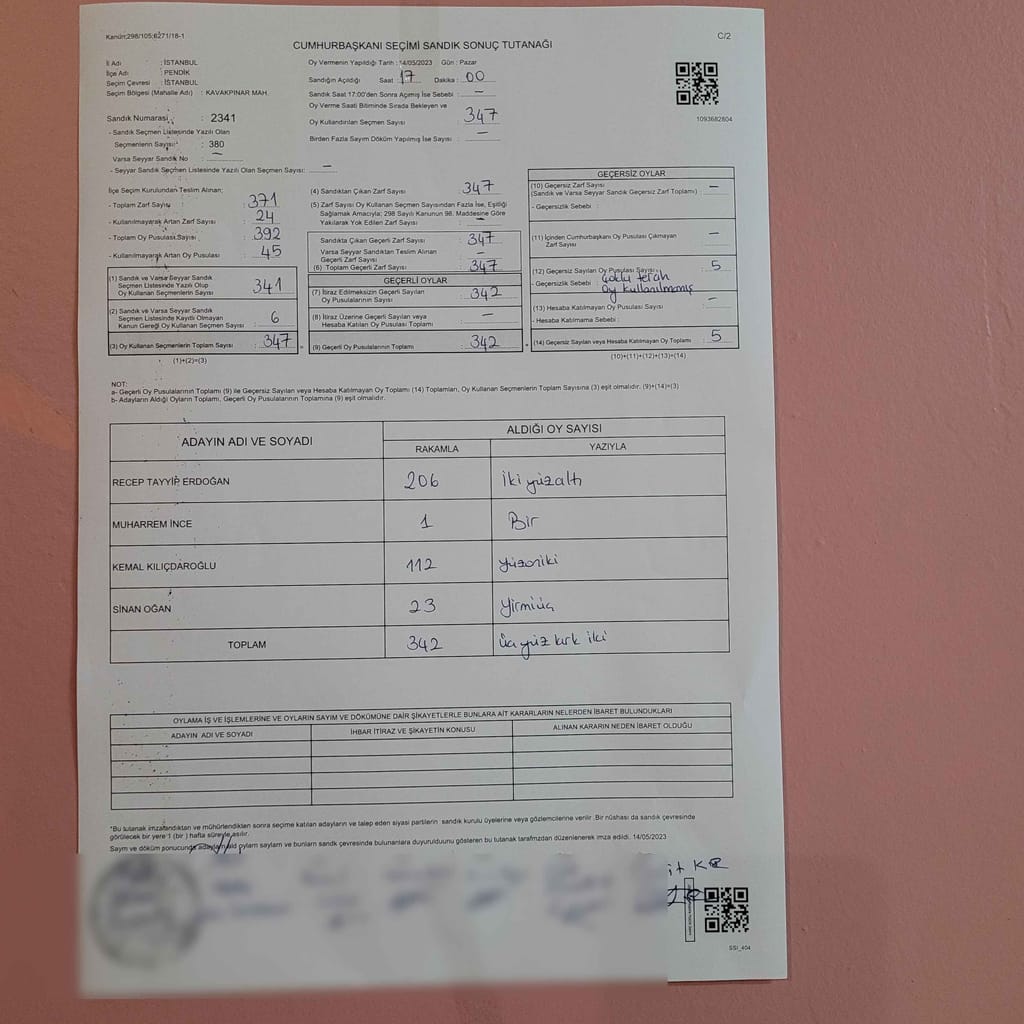 Kanun:298/105;6271/18-1
C/2
CUMHURBAŞKANI SEÇİMİ SANDIK SONUÇ TUTANAĞI
İl Adı : İSTANBUL
İlçe Adı : PENDİK
Seçim Çevresi : İSTANBUL
Seçim Bölgesi (Mahalle Adı) : KAVAKPINAR MAH.
Oy Vermenin Yapıldığı Tarih : 14/05/2023 Gün : Pazar
Sandığın Açıldığı Saat : 17 Dakika : 00
Sandık Saat 17:00'den Sonra Açımış İse Sebebi : —
Oy Verme Saati Bitiminde Sırada Bekleyen ve
Oy Kullandırılan Seçmen Sayısı : 347
Birden Fazla Sayım Döküm Yapılmış İse Sayısı : —
1093682804
Sandık Numarası : 2341
- Sandık Seçmen Listesinde Yazılı Olan
Seçmenlerin Sayısı : 380
Varsa Seyyar Sandık No : —
- Seyyar Sandık Seçmen Listesinde Yazılı Olan Seçmen Sayısı: —
İlçe Seçim Kurulundan Teslim Alınan;
- Toplam Zarf Sayısı : 371
- Kullanılmayarak Artan Zarf Sayısı : 24
- Toplam Oy Pusulası Sayısı : 392
- Kullanılmayarak Artan Oy Pusulası : 45
(1) Sandık ve Varsa Seyyar Sandık
Seçmen Listesinde Yazılı Olup
Oy Kullanan Seçmenlerin Sayısı : 341
(2) Sandık ve Varsa Seyyar Sandık
Seçmen Listesinde Kayıtlı Olmayan
Kanun Gereği Oy Kullanan Seçmen Sayısı : 6
(3) Oy Kullanan Seçmenlerin Toplam Sayısı : 347
(1)+(2)=(3)
(4) Sandıktan Çıkan Zarf Sayısı : 347
(5) Zarf Sayısı Oy Kullanan Seçmen Sayısından Fazla İse, Eşitliği
Sağlamak Amacıyla; 298 Sayılı Kanunun 98. Maddesine Göre
Yakılarak Yok Edilen Zarf Sayısı : —
Sandıkta Çıkan Geçerli Zarf Sayısı : 347
Varsa Seyyar Sandıktan Teslim Alınan
Geçerli Zarf Sayısı : —
(6) Toplam Geçerli Zarf Sayısı : 347
GEÇERLİ OYLAR
(7) İtiraz Edilmeksizin Geçerli Sayılan
Oy Pusulalarının Sayısı : 342
(8) İtiraz Üzerine Geçerli Sayılan veya
Hesaba Katılan Oy Pusulası Toplamı : —
(9) Geçerli Oy Pusulalarının Toplamı : 342
GEÇERSİZ OYLAR
(10) Geçersiz Zarf Sayısı : —
(Sandık ve Varsa Seyyar Sandık Geçersiz Zarf Toplamı)
- Geçersizlik Sebebi :
(11) İçinden Cumhurbaşkanı Oy Pusulası Çıkmayan
Zarf Sayısı : —
(12) Geçersiz Sayılan Oy Pusulası Sayısı : 5
- Geçersizlik Sebebi : Çoklu tercih
oy kullanılmamış
(13) Hesaba Katılmayan Oy Pusulası Sayısı : —
- Hesaba Katılmama Sebebi :
(14) Geçersiz Sayılan veya Hesaba Katılmayan Oy Toplamı : 5
(10)+(11)+(12)+(13)=(14)
NOT:
a- Geçerli Oy Pusulalarının Toplamı (9) ile Geçersiz Sayılan veya Hesaba Katılmayan Oy Toplamı (14) Toplamları, Oy Kullanan Seçmenlerin Toplam Sayısına (3) eşit olmalıdır. (9)+(14)=(3)
b- Adayların Aldığı Oyların Toplamı, Geçerli Oy Pusulalarının Toplamına (9) eşit olmalıdır.
ADAYIN ADI VE SOYADI
ALDIĞI OY SAYISI
RAKAMLA YAZIYLA
RECEP TAYYİP ERDOĞAN 206 İki yüzaltı
MUHARREM İNCE 1 Bir
KEMAL KILIÇDAROĞLU 112 yüzoniki
SİNAN OĞAN 23 Yirmiüç
TOPLAM 342 Üç yüz kırk iki
OYLAMA İŞ VE İŞLEMLERİNE VE OYLARIN SAYIM VE DÖKÜMÜNE DAİR ŞİKAYETLERLE BUNLARA AİT KARARLARIN NELERDEN İBARET BULUNDUKLARI
ADAYIN ADI VE SOYADI İHBAR İTİRAZ VE ŞİKAYETİN KONUSU ALINAN KARARIN NEDEN İBARET OLDUĞU
*Bu tutanak imzalandıktan ve mühürlendikten sonra seçime katılan adayların ve talep eden siyasi partilerin sandık kurulu üyelerine veya gözlemcilerine verilir .Bir nüshası da sandık çevresinde
görülecek bir yere 1 (bir ) hafta süreyle asılır.
Sayım ve döküm sonucunda adayların aldığı oyların sayısını ve bunların sandık çevresinde bulunanlara duyurulduğunu gösteren bu tutanak tarafımızdan düzenlenerek imza edildi. 14/05/2023
SSI_404